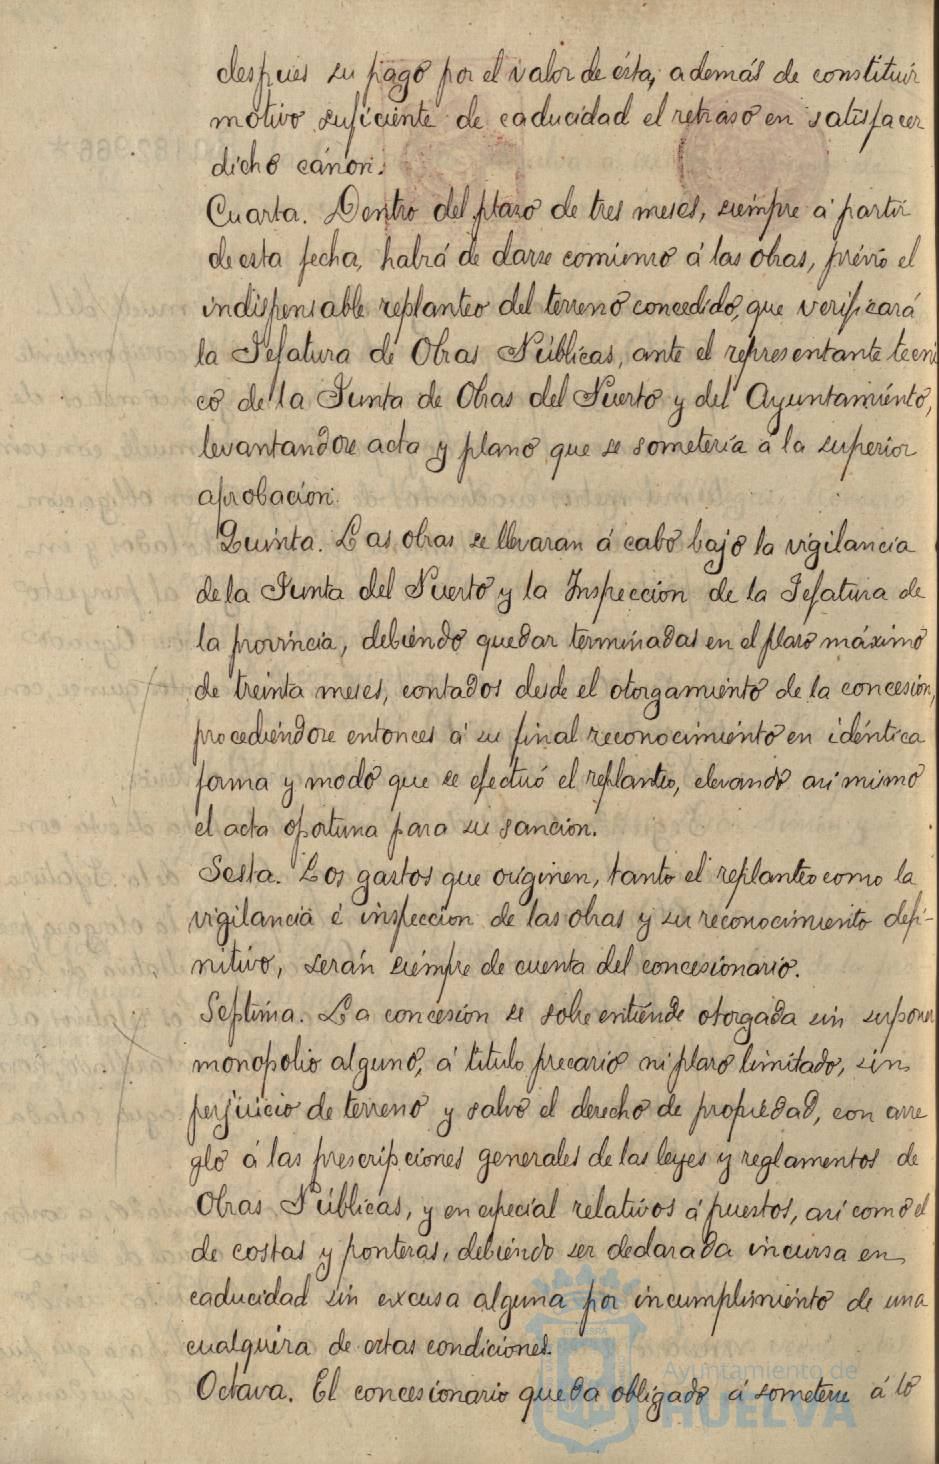 despues su pago por el valor de ésta, además de constituir
motivo suficiente de caducidad el retraso en satisfacer
dicho cánon.
Cuarta. Dentro del plazo de tres meses, siempre á partir
de esta fecha, habrá de darse comienzo á las obras, prévio el
indispensable replanteo del terreno concedido, que verificará
la Jefatura de Obras Públicas, ante el representante tecni
co de la Junta de Obras del Puerto y del Ayuntamiento,
levantandose acta y plano que se sometería á la superior
aprobación.
Quinta. Las obras se llevaran á cabo bajo la vigilancia
de la Junta del Puerto y la Inspección de la Jefatura de
la provincia, debiendo quedar terminadas en el plazo máximo
de treinta meses, contados desde el otorgamiento de la concesión,
procediéndose entonces á su final reconocimiento en idéntica
forma y modo que se efectuó el replanteo, elevando asi mismo
el acta oportuna para su sanción.
Sesta. Los gastos que originen, tanto el replanteo como la
vigilancia é inspección de las obras y su reconocimiento defi-
nitivo, serán siempre de cuenta del concesionario.
Septima. La concesión se sobreentiende otorgada sin suponer
monopolio alguno, á titulo precario ni plazo limitado, sin
perjuicio de terreno y salvo el derecho de propiedad, con arre
glo á las prescripciones generales de las leyes y reglamentos de
Obras Públicas, y en especial relativos á puestos, asi como el
de costas y ponteras, debiendo ser declarada incursa en
caducidad sin excusa alguna por incumplimiento de una
cualquira de estas condiciones.
Octava. El concesionario queda obligado á someterse á lo
Ayuntamiento de
HUELVA